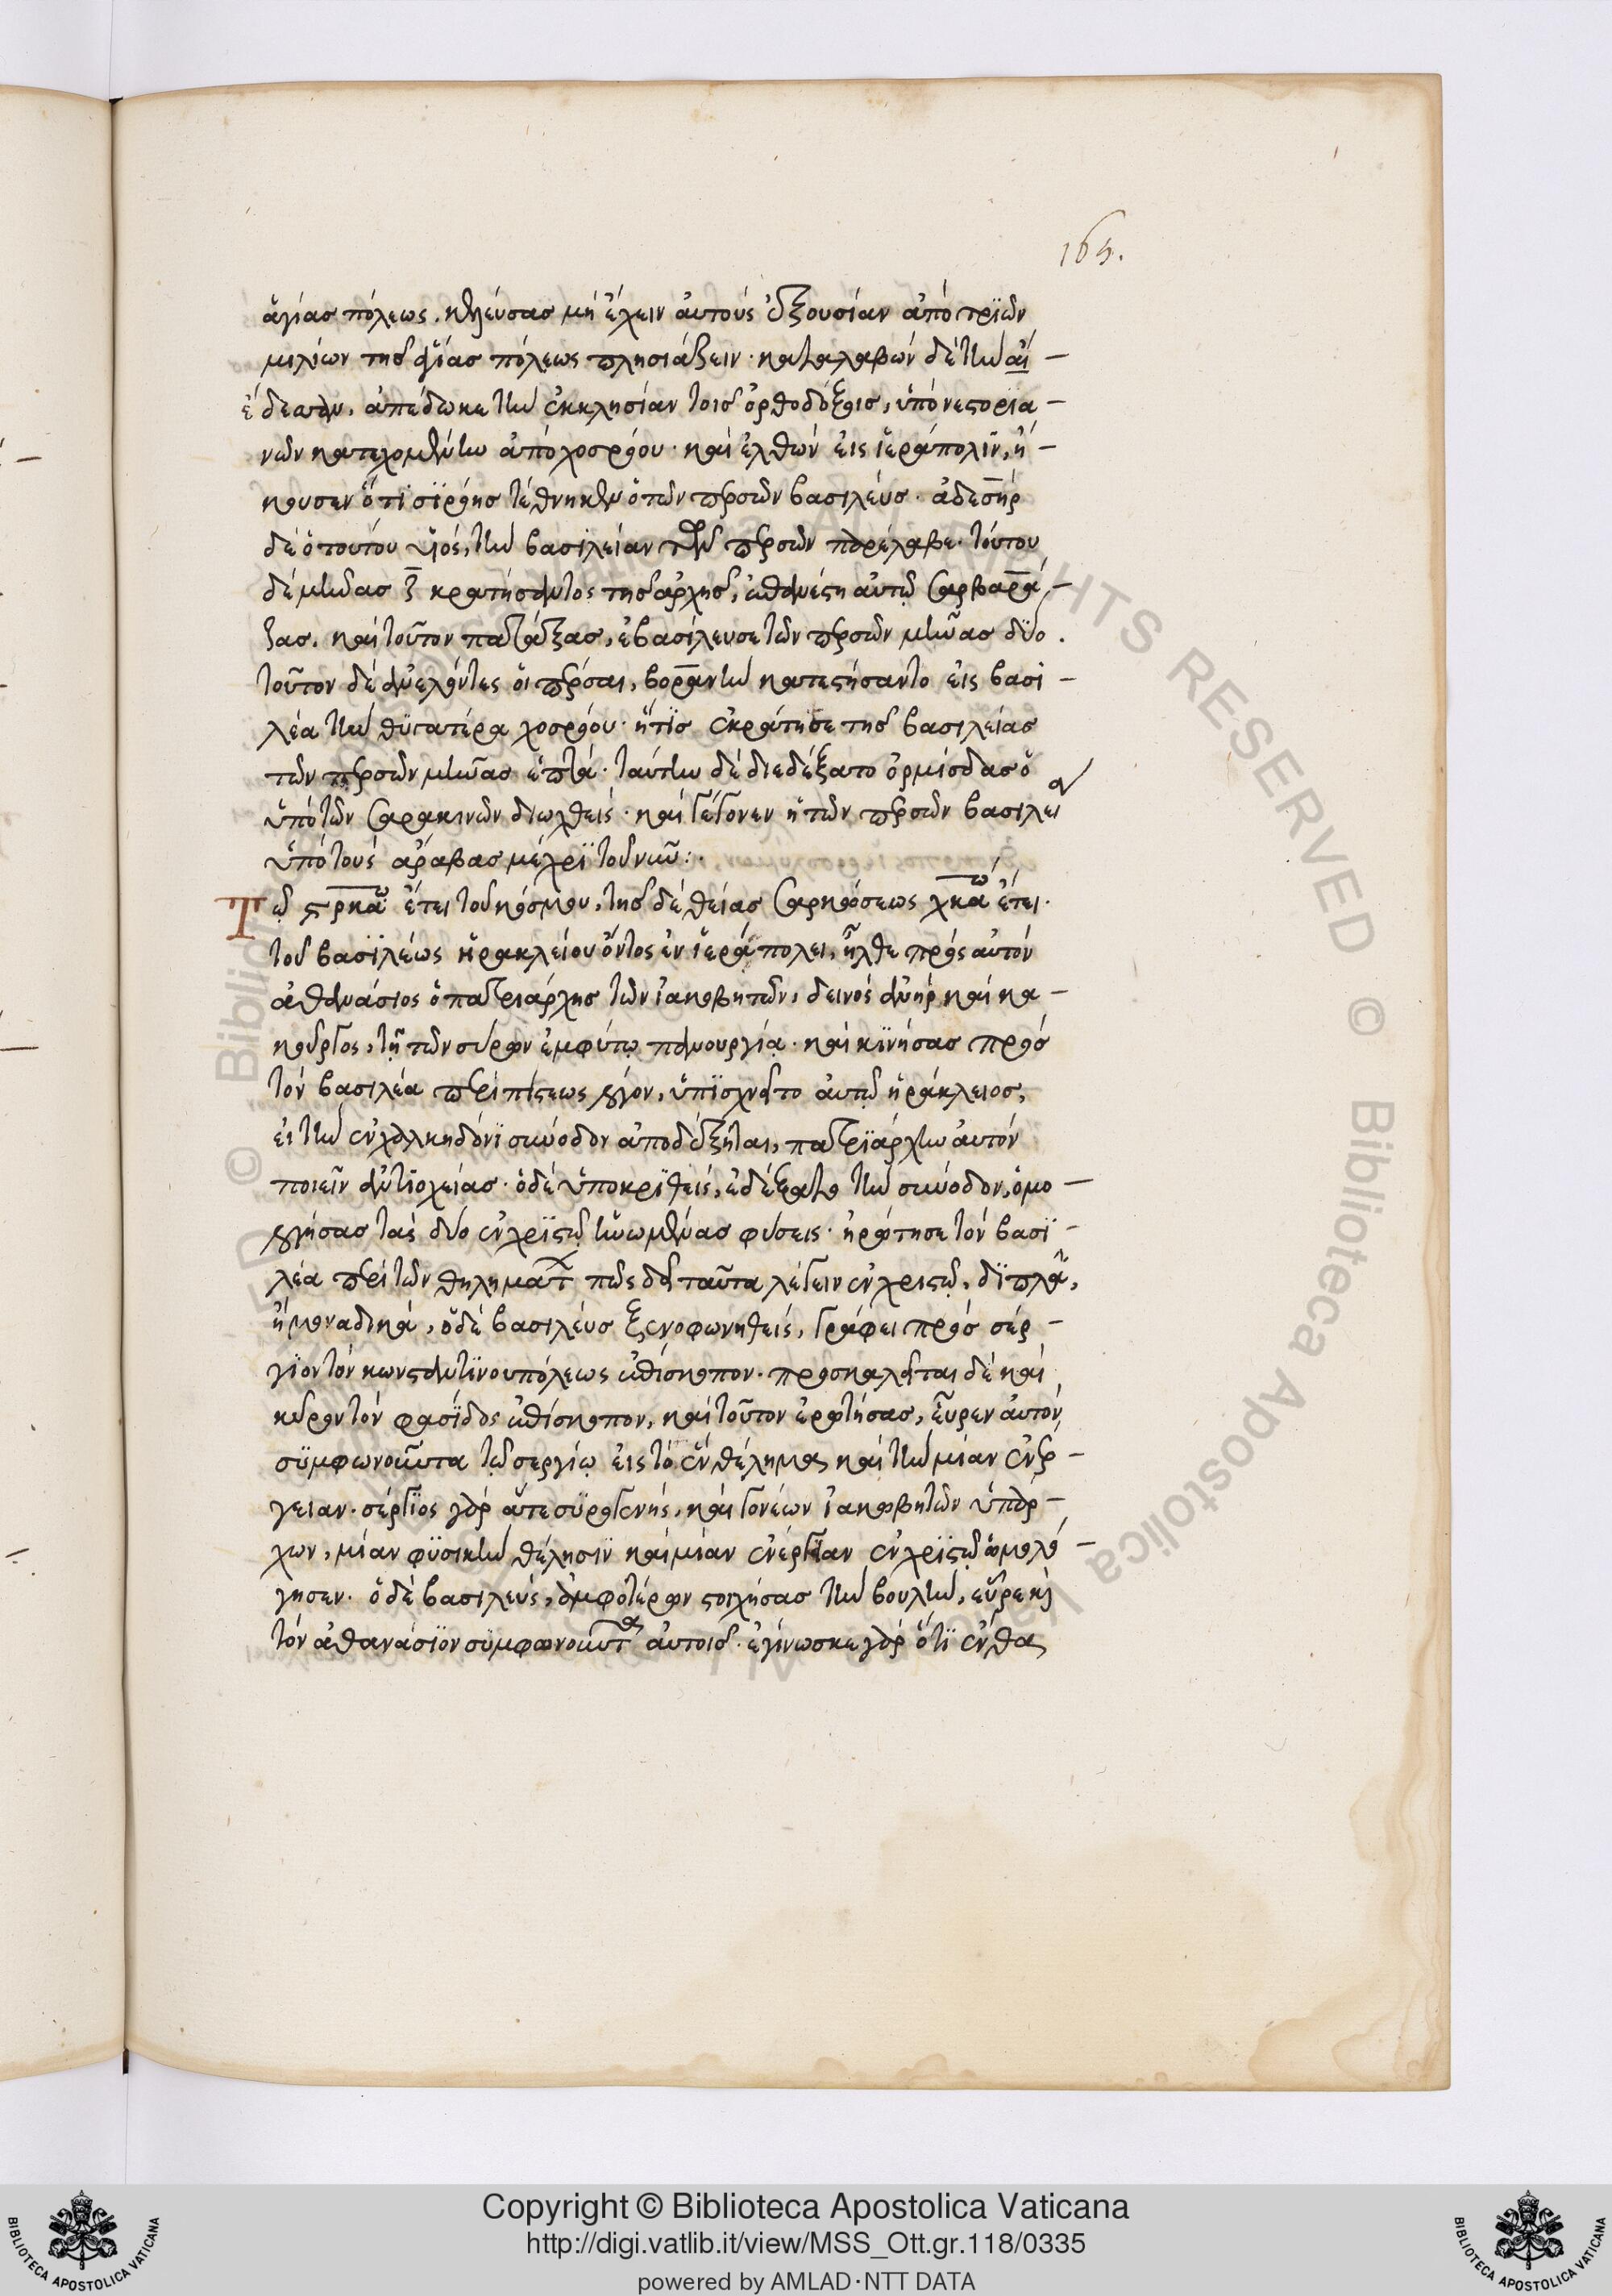 165.
ἁγίας πόλεως. κελεύσας μὴ ἔχειν αὐτοὺς ἐξουσίαν ἀπὸ τριῶν
μιλίων τῆς ἁγίας πόλεως πλησιάζειν. καταλαβὼν δὲ τὴν αἴ–
έδεσαν, ἀπέδωκε τὴν ἐκκλησίαν τοῖς ὀρθοδόξοις, ὑπὸ νεστορια–
νῶν κατεχομένην ἀπὸ χοσρόου. καὶ ἐλθὼν εἰς ἱεράπολιν, ἤ–
κουσεν ὅτι σιρόης τέθνηκεν ὁ τῶν περσῶν βασιλεύς. ἀδεσὴρ
δὲ ὁ τούτου υἱός, τὴν βασιλείαν τῶν περσῶν παρέλαβε. τούτου
δὲ μῆνας ζ κρατήσαντος τῆς ἀρχῆς, ἐπανέστη αὐτῷ σαρβαρα–
ζας. καὶ τοῦτον πατάξας, ἐβασίλευσε τῶν περσῶν μῆνας δύο.
τοῦτον δὲ ἀνελόντες οἱ πέρσαι, βορανὴν κατεστήσαντο εἰς βασι–
λέα τὴν θυγατέρα χοσρόου. ἥτις ἐκράτησε τῆς βασιλείας
τῶν περσῶν μῆνας ἑπτά. ταύτην δὲ διεδέξατο ὁρμίσδας ὁ
ὑπὸ τῶν σαρακινῶν διωχθείς. καὶ γέγονεν ἡ τῶν περσῶν βασιλεία
ὑπὸ τοὺς ἄραβας μέχρι τοῦ νῦν:.
Τῷ ϛρκαω ἔτει τοῦ κόσμου, τῆς δὲ θείας σαρκώσεως χκαω ἔτει.
τοῦ βασιλέως ἡρακλείου ὄντος ἐν ἱεραπόλει, ἦλθε πρὸς αὐτὸν
ἀθανάσιος ὁ πατριάρχης τῶν ἰακωβητῶν, δεινὸς ἀνὴρ καὶ κα–
κοῦργος, τῇ τῶν σύρων ἐμφύτῳ πανουργίᾳ. καὶ κινήσας πρὸς
τὸν βασιλέα περὶ πίστεως λόγον, ὑπισχνεῖτο αὐτῷ ἡράκλειος,
εἰ τὴν ἐν χαλκηδόνι σύνοδον ἀποδέξηται, πατριάρχην αὐτὸν
ποιεῖν ἀντιοχείας. ὁ δὲ ὑποκριθεὶς, ἐδέξατο τὴν σύνοδον, ὁμο–
λογήσας τὰς δύο ἐν χριστῷ ἡνωμένας φύσεις. ἠρώτησε τὸν βασι–
λέα περὶ τῶν θελημάτων πῶς δεῖ ταῦτα λέγειν ἐν χριστῷ, διπλᾶ,
ἢ μοναδικά, ὁ δὲ βασιλεὺς ξενοφωνηθεὶς, γράφει πρὸς σέρ–
γιον τὸν κωνσταντινουπόλεως ἐπίσκοπον. προσκαλεῖται δὲ καὶ
κῦρον τὸν φασίδος ἐπίσκοπον, καὶ τοῦτον ἐρωτήσας, εὗρεν αὐτὸν
συμφωνοῦντα τῷ σεργίῳ εἰς τὸ ἓν θέλημα καὶ τὴν μίαν ἐνέρ–
γειαν. σέργιος γὰρ ἅτε συρογενὴς, καὶ γονέων ἰακωβητῶν ὑπάρ–
χων, μίαν φυσικὴν θέλησιν καὶ μίαν ἐνέργειαν ἐν χριστῷ ὡμολό–
γησεν. ὁ δὲ βασιλεὺς, ἀμφοτέρων στοιχήσας τὴν βουλὴν, εὗρε καὶ
τὸν ἀθανάσιον συμφωνοῦντα αὐτοῖς. ἐγίνωσκε γὰρ ὅτι ἔνθα
Copyright © Biblioteca Apostolica Vaticana
http://digi.vatlib.it/view/MSS_Ott.gr.118/0335
powered by AMLAD·NTT DATA